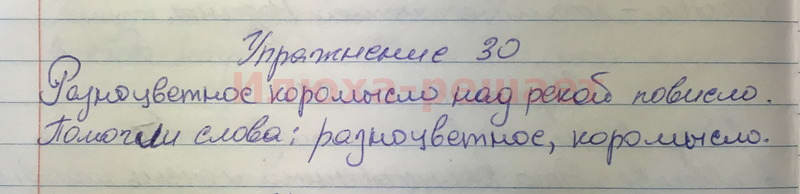 Упражнение 30
Разноцветное коромысло над рекой повисло.
Помогли слова: разноцветное, коромысло.